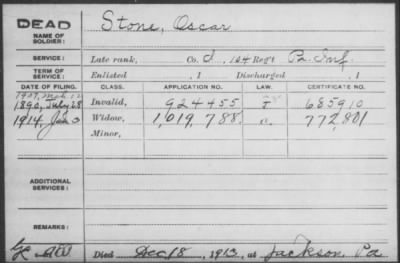 DEAD
NAME OF SOLDIER: Stone, Oscar
SERVICE: Late rank, Co. d, 104 Reg't Pa. Inf.
TERM OF SERVICE: Enlisted , 1 Discharged , 1
DATE OF FILING. CLASS. APPLICATION NO. LAW. CERTIFICATE NO.
1907, Mch 12
1890, July 28 Invalid, 924455 J 685910
1914, Jan 3 Widow, 1,019,788. 772,801
Minor,
ADDITIONAL SERVICES:
REMARKS:
Died Dec 18, 1913, at Jackson, Pa